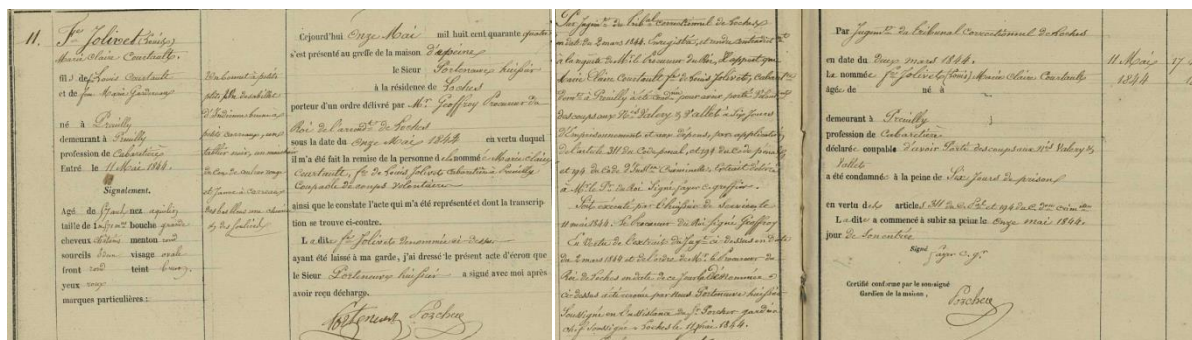 11.
Fe Jolivet (Louis)
Marie Claire Courtault
fil de Louis Courtault
et de feue Marie
né à Preuilly
demeurant à Preuilly
profession de Cabaretière
Entré le 11 Mai 1844.
Signalement.
Agé de nez aquilin
taille de bouche grande
cheveux châtains menton rond
sourcils idem visage ovale
front rond teint brun
yeux roux
marques particulières :
Un bonnet à petits
tablier noir, un mouchoir
de cou de coton rouge
et jaune à carreaux
des bas bleus une chemise
& des souliers
Cejourd'hui onze Mai mil huit cent quarante quatre
s'est présenté au greffe de la maison
le Sieur Porteneuve huissier
à la résidence de Loches
porteur d'un ordre délivré par Mr. Geoffroy Procureur du
Roi de l'arrondt de Loches
sous la date du onze Mai 1844 en vertu duquel
il m'a été fait la remise de la personne d la nommé e Marie Claire
Courtault, fe de Louis Jolivet cabaretière à Preuilly
Coupable de coups volontaires
ainsi que le constate l'acte qui m'a été représenté et dont la transcription
se trouve ci-contre.
La dite fe Jolivet dénommée ci-dessus
ayant été laissé à ma garde, j'ai dressé le présent acte d'écrou que
le Sieur Porteneuve huissier a signé avec moi après
avoir reçu décharge.
Porteneuve Porcher
Par jugemt du tribal correctionnel de Loches
en date du 2 mars 1844. Enregistré, et rendu contradictt
à la requête de Mr le Procureur du Roi, il appert que
Marie Claire Courtault fe de Louis Jolivet, Cabaretière
demt à Preuilly a été condnée pour avoir porté volont
des coups aux Nés Valery & Vallet à Six Jours
d'emprisonnement et aux dépens, par application
de l'article 311 du Code pénal, et 194 du C de
et 194 du Code d'Instron Criminelle. Extrait délivré
à Mr le Pr du Roi Signé Gayer c. greffier.
Soit exécuté par l'huissier de Service
11 mai 1844. Le procureur du Roi signé Geoffroy
En Vertu de l'extrait du Jugt ci-dessus en date
du 2 mars 1844 et de l'ordre de Mr. le Procureur du
Roi de Loches en date de ce jour la dénommée
ci-dessus a été écrouée par Nous Porteneuve huissier
Soussigné en l'assistance du Sr Porcher gardien
chef Soussigné à Loches le 11 Mai 1844.
Par Jugemt du tribunal Correctionnel de Loches
en date du Deux mars 1844
La nommée fe Jolivet (Louis) Marie Claire Courtault
âgée de né à
demeurant à Preuilly
profession de Cabaretière
déclarée coupable d'avoir Porté des coups aux Nés Valery &
Vallet
a été condamnée à la peine de Six Jours de prison
en vertu des articles 311 du C. Pal et 194 du C. d'Ins crimle
La dite a commencé à subir sa peine le onze mai 1844.
jour de son entrée
Signé
Gayer c. gr
Certifié conforme par le soussigné
Gardien de la maison,
Porcher
11 Mai
1844
17